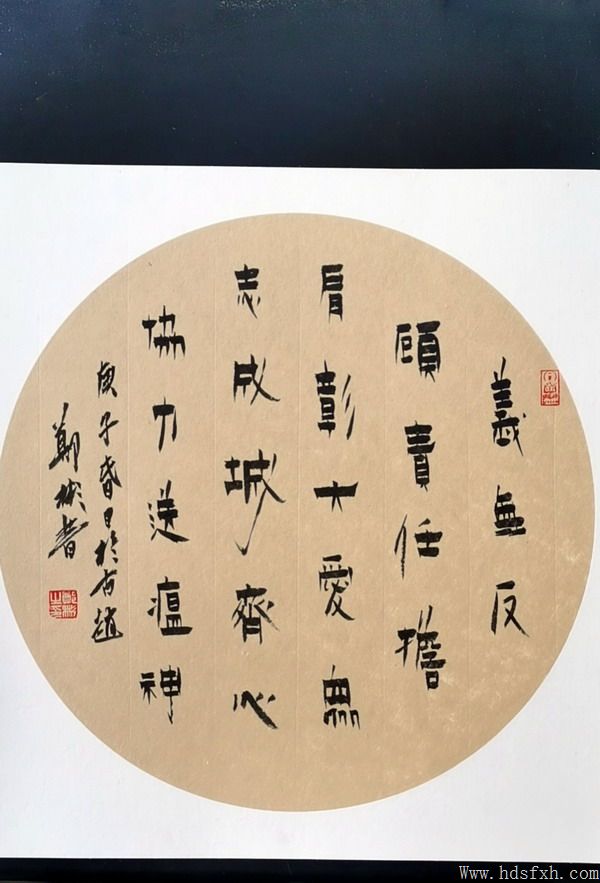 義無反
顧責任擔
肩彰大愛眾
志成城齊心
協力送瘟神
庚子春日於古趙
鄭彬書
www.hdsfxh.com